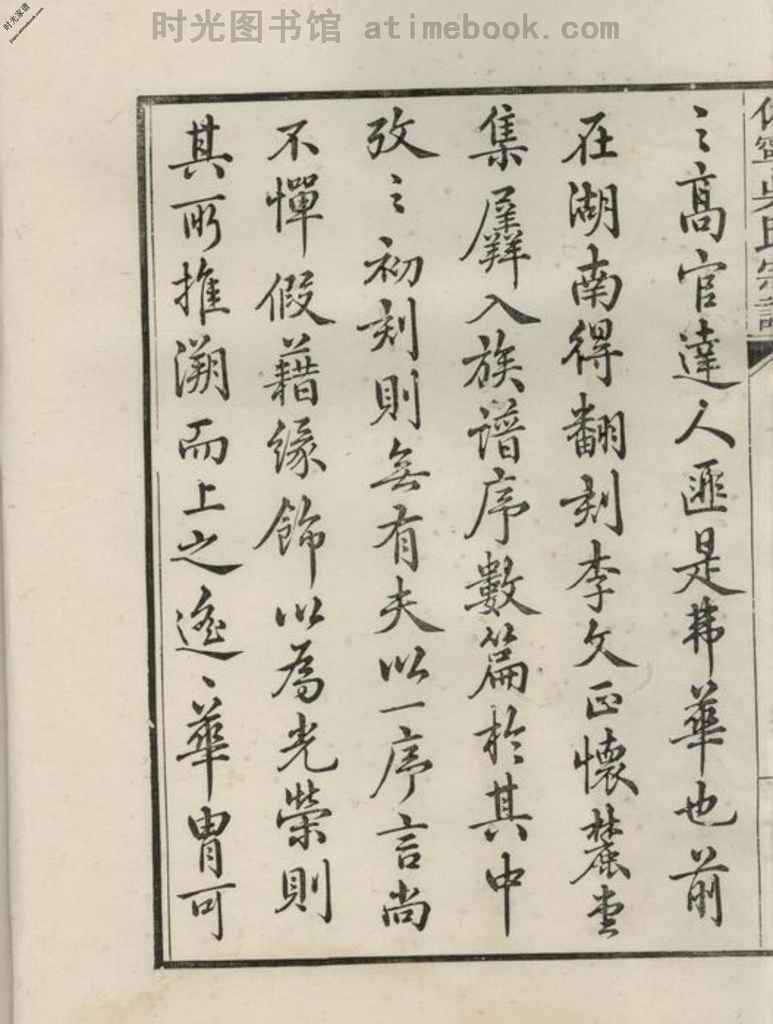 时光图书馆 atimebook.com
时光家谱
之高官達人匪是弗華也前
在湖南得翻刻李文正懷麓堂
集羼入族譜序數篇於其中
攷之初刻則無有夫以一序言尚
不憚假藉緣飾以為光榮則
其所推溯而上之遙遙華胄可
吳氏宗譜